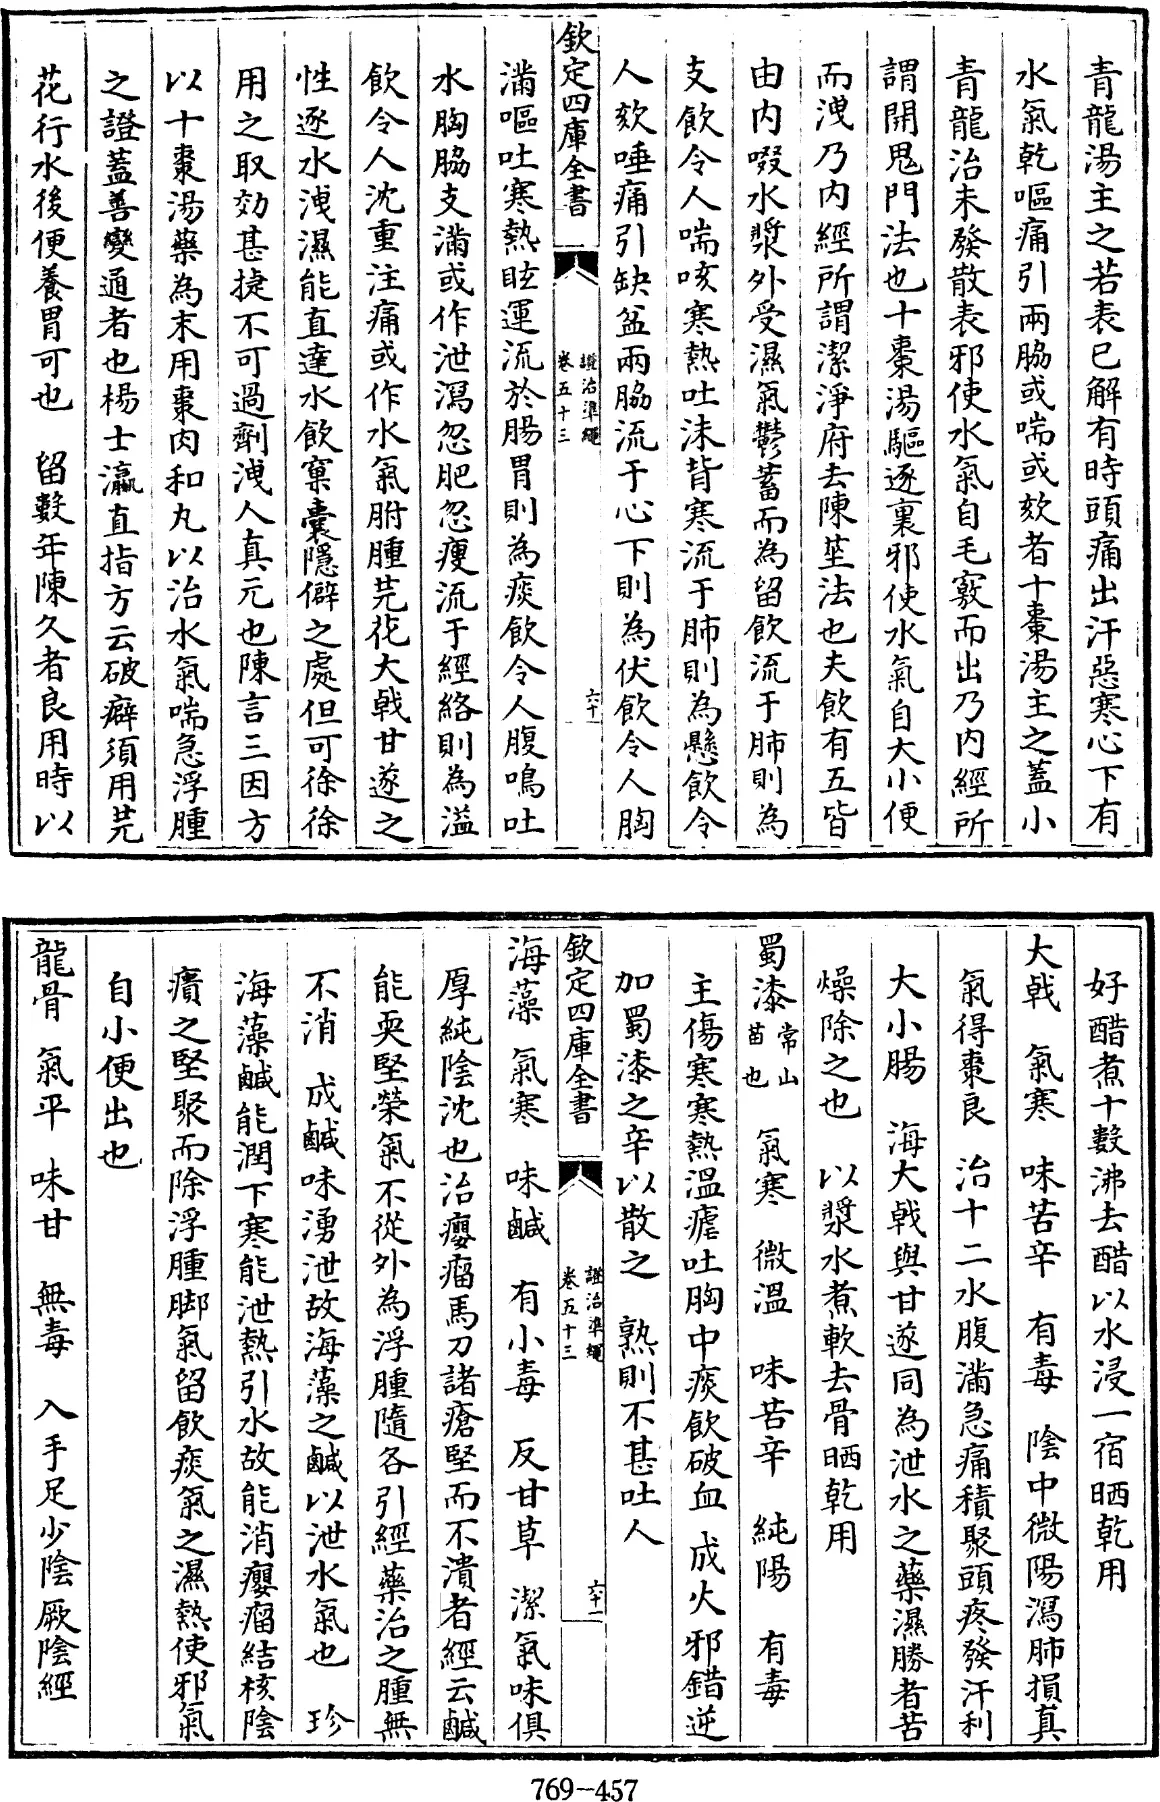 青龍湯主之若表已解有時頭痛出汗惡寒心下有
水氣乾嘔痛引兩脇或喘或欬者十棗湯主之蓋小
青龍治未發散表邪使水氣自毛竅而出乃内經所
謂開鬼門法也十棗湯驅逐裏邪使水氣自大小便
而洩乃内經所謂潔淨府去陳莝法也夫飲有五皆
由内啜水漿外受濕氣鬱蓄而為留飲流于肺則為
支飲令人喘咳寒熱吐沫背寒流于肺則為懸飲令
人欬唾痛引缺盆兩脇流于心下則為伏飲令人胸
欽定四庫全書
證治準繩
卷五十三
六十
滿嘔吐寒熱眩運流於腸胃則為痰飲令人腹鳴吐
水胸脇支滿或作泄瀉忽肥忽瘦流于經絡則為溢
飲令人沈重注痛或作水氣胕腫芫花大戟甘遂之
性逐水洩濕能直達水飲窠囊隱僻之處但可徐徐
用之取効甚捷不可過劑洩人真元也陳言三因方
以十棗湯藥為末用棗肉和丸以治水氣喘急浮腫
之證蓋善變通者也楊士瀛直指方云破癖須用芫
花行水後便養胃可也 留數年陳久者良用時以
好醋煮十數沸去醋以水浸一宿晒乾用
大戟 氣寒 味苦辛 有毒 陰中微陽瀉肺損真
氣得棗良 治十二水腹滿急痛積聚頭疼發汗利
大小腸 海大戟與甘遂同為泄水之藥濕勝者苦
燥除之也 以漿水煮軟去骨晒乾用
蜀漆常山苗也 氣寒 微溫 味苦辛 純陽 有毒
主傷寒寒熱溫瘧吐胸中痰飲破血 成火邪錯逆
加蜀漆之辛以散之 熟則不甚吐人
欽定四庫全書
證治準繩
卷五十三
六十一
海藻 氣寒 味鹹 有小毒 反甘草 潔氣味俱
厚純陰沈也治癭瘤馬刀諸瘡堅而不潰者經云鹹
能耎堅榮氣不從外為浮腫隨各引經藥治之腫無
不消 成鹹味湧泄故海藻之鹹以泄水氣也 珍
海藻鹹能潤下寒能泄熱引水故能消癭瘤結核陰
㿉之堅聚而除浮腫脚氣留飲痰氣之濕熱使邪氣
自小便出也
龍骨 氣平 味甘 無毒 入手足少陰厥陰經
769-457